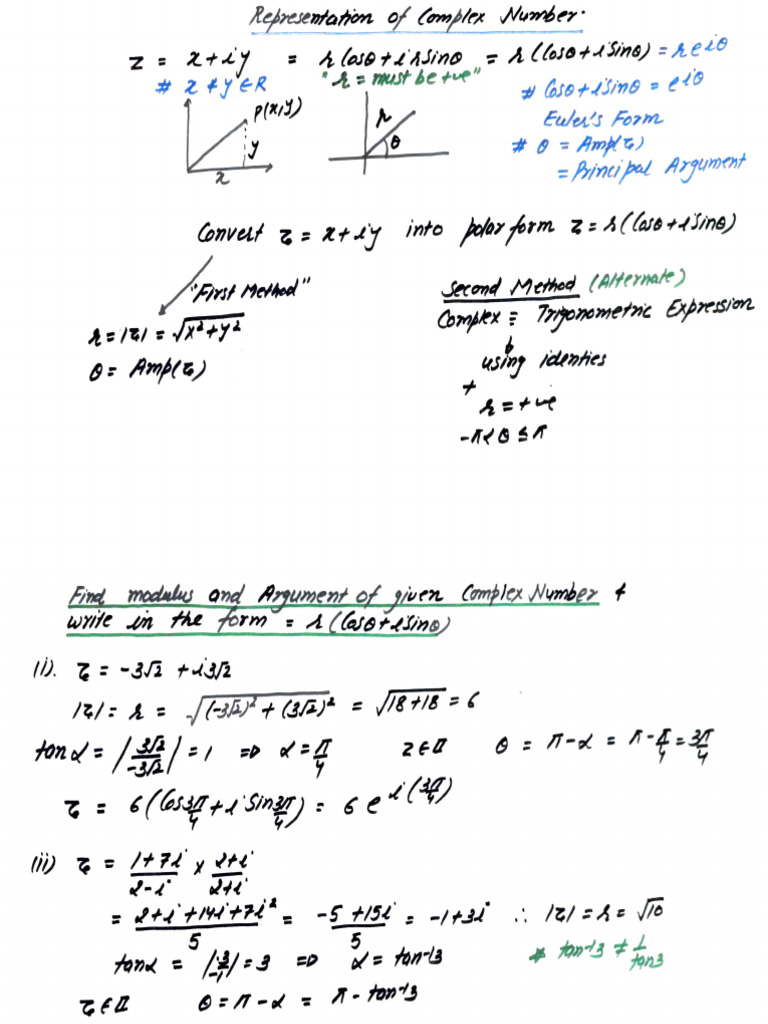 Representation of Complex Number.
z = x+iy = r Cosθ+i r Sinθ = r(Cosθ+i Sinθ) = r e^{iθ}
# x & y ∈ R
"r = must be +ve"
# Cosθ+i Sinθ = e^{iθ}
Euler's Form
# θ = Amp(z)
= Principal Argument
P(x,y)
y
x
r
θ
Convert z = x+iy into polar form z = r(Cosθ+i Sinθ)
"First Method"
r = |z| = √(x²+y²)
θ = Amp(z)
Second Method (Alternate)
Complex = Trigonometric Expression
using identies
+
r = +ve
-π<θ≤π
Find modulus and Argument of given Complex Number &
write in the form = r(Cosθ+i Sinθ)
(i). z = -3√2 + i3√2
|z| = r = √((-3√2)² + (3√2)²) = √(18+18) = 6
tanα = |3√2/-3√2| = 1 ⇒ α = π/4 z∈II θ = π-α = π-π/4 = 3π/4
z = 6(Cos 3π/4 + i Sin 3π/4) = 6 e^{i(3π/4)}
(ii) z = (1+7i)/(2-i) × (2+i)/(2+i)
= (2+i+14i+7i²)/5 = (-5+15i)/5 = -1+3i ∴ |z| = r = √10
tanα = |3/-1| = 3 ⇒ α = tan⁻¹3
* tan⁻¹3 ≠ 1/tan3
z∈II θ = π-α = π-tan⁻¹3